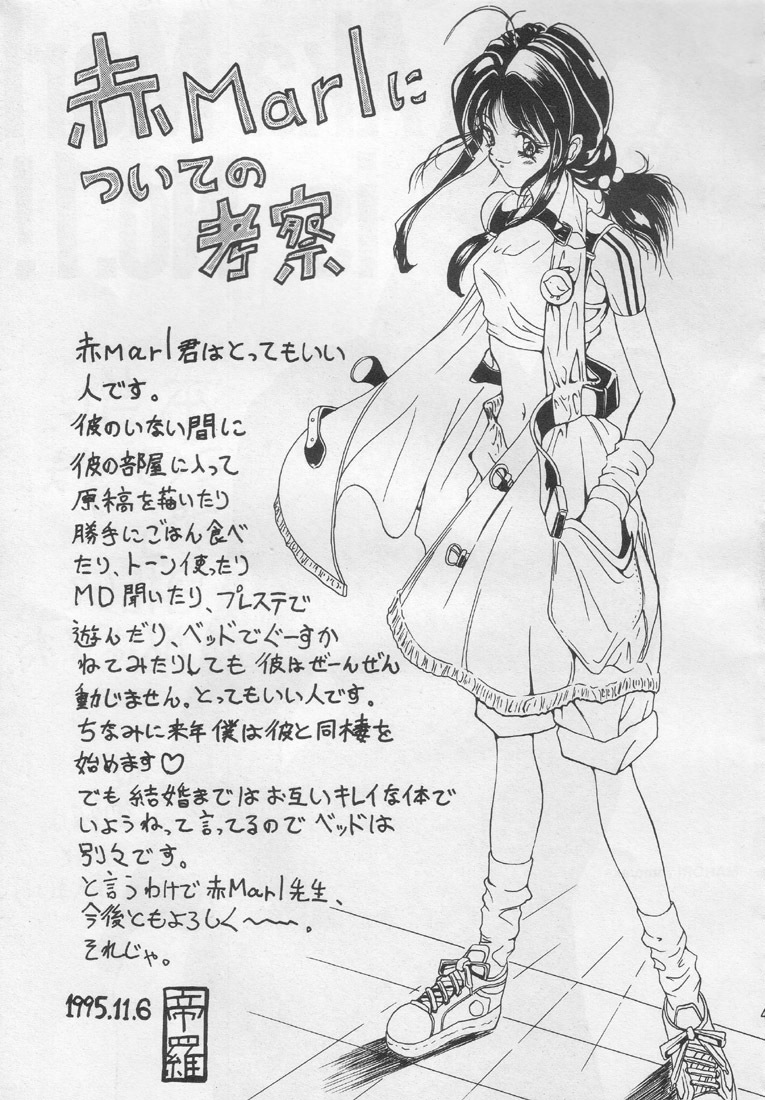 赤Marlに
ついての
考察
赤Marl君はとってもいい
人です。
彼のいない間に
彼の部屋に入って
原稿を描いたり
勝手にごはん食べ
たり、トーン使ったり
MD聞いたり、プレステで
遊んだり、ベッドでぐーすか
ねてみたりしても彼はぜーんぜん
動じません。とってもいい人です。
ちなみに来年僕は彼と同棲を
始めます♡
でも結婚まではお互いキレイな体で
いようねって言ってるのでベッドは
別々です。
と言うわけで赤Marl先生、
今後ともよろしく〜〜。
それじゃ。
1995.11.6
帝羅